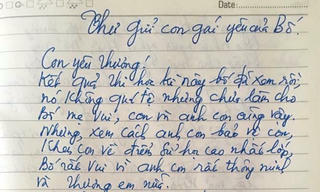 Date:
Thư gửi con gái yêu của Bố.
Con yêu thương!
Kết quả thi học kì này bố đã xem rồi,
nó không quá tệ nhưng chưa làm cho
Bố mẹ vui, con và anh con cũng vậy.
Nhưng, xem cách anh con bảo vệ con,
khen con về điểm sử học cao nhất lớp,
Bố rất vui vì anh con rất thông minh
và thương em nữa.